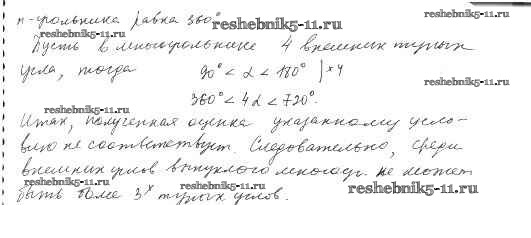 n-угольника равна 360°
reshebnik5-11.ru
reshebnik5-11.ru
reshebnik5-11.ru
Пусть в многоугольнике 4 внешних тупых
угла, тогда 90° < α < 180° | × 4
reshebnik5-11.ru
reshebnik5-11.ru
360° < 4α < 720°.
reshebnik5-11.ru
Итак, полученная оценка указанному усло-
reshebnik5-11.ru
вию не соответствует. Следовательно, среди
внешних углов выпуклого многоуг. не может
reshebnik5-11.ru
reshebnik5-11.ru
reshebnik5-11.ru
быть более 3х тупых углов.